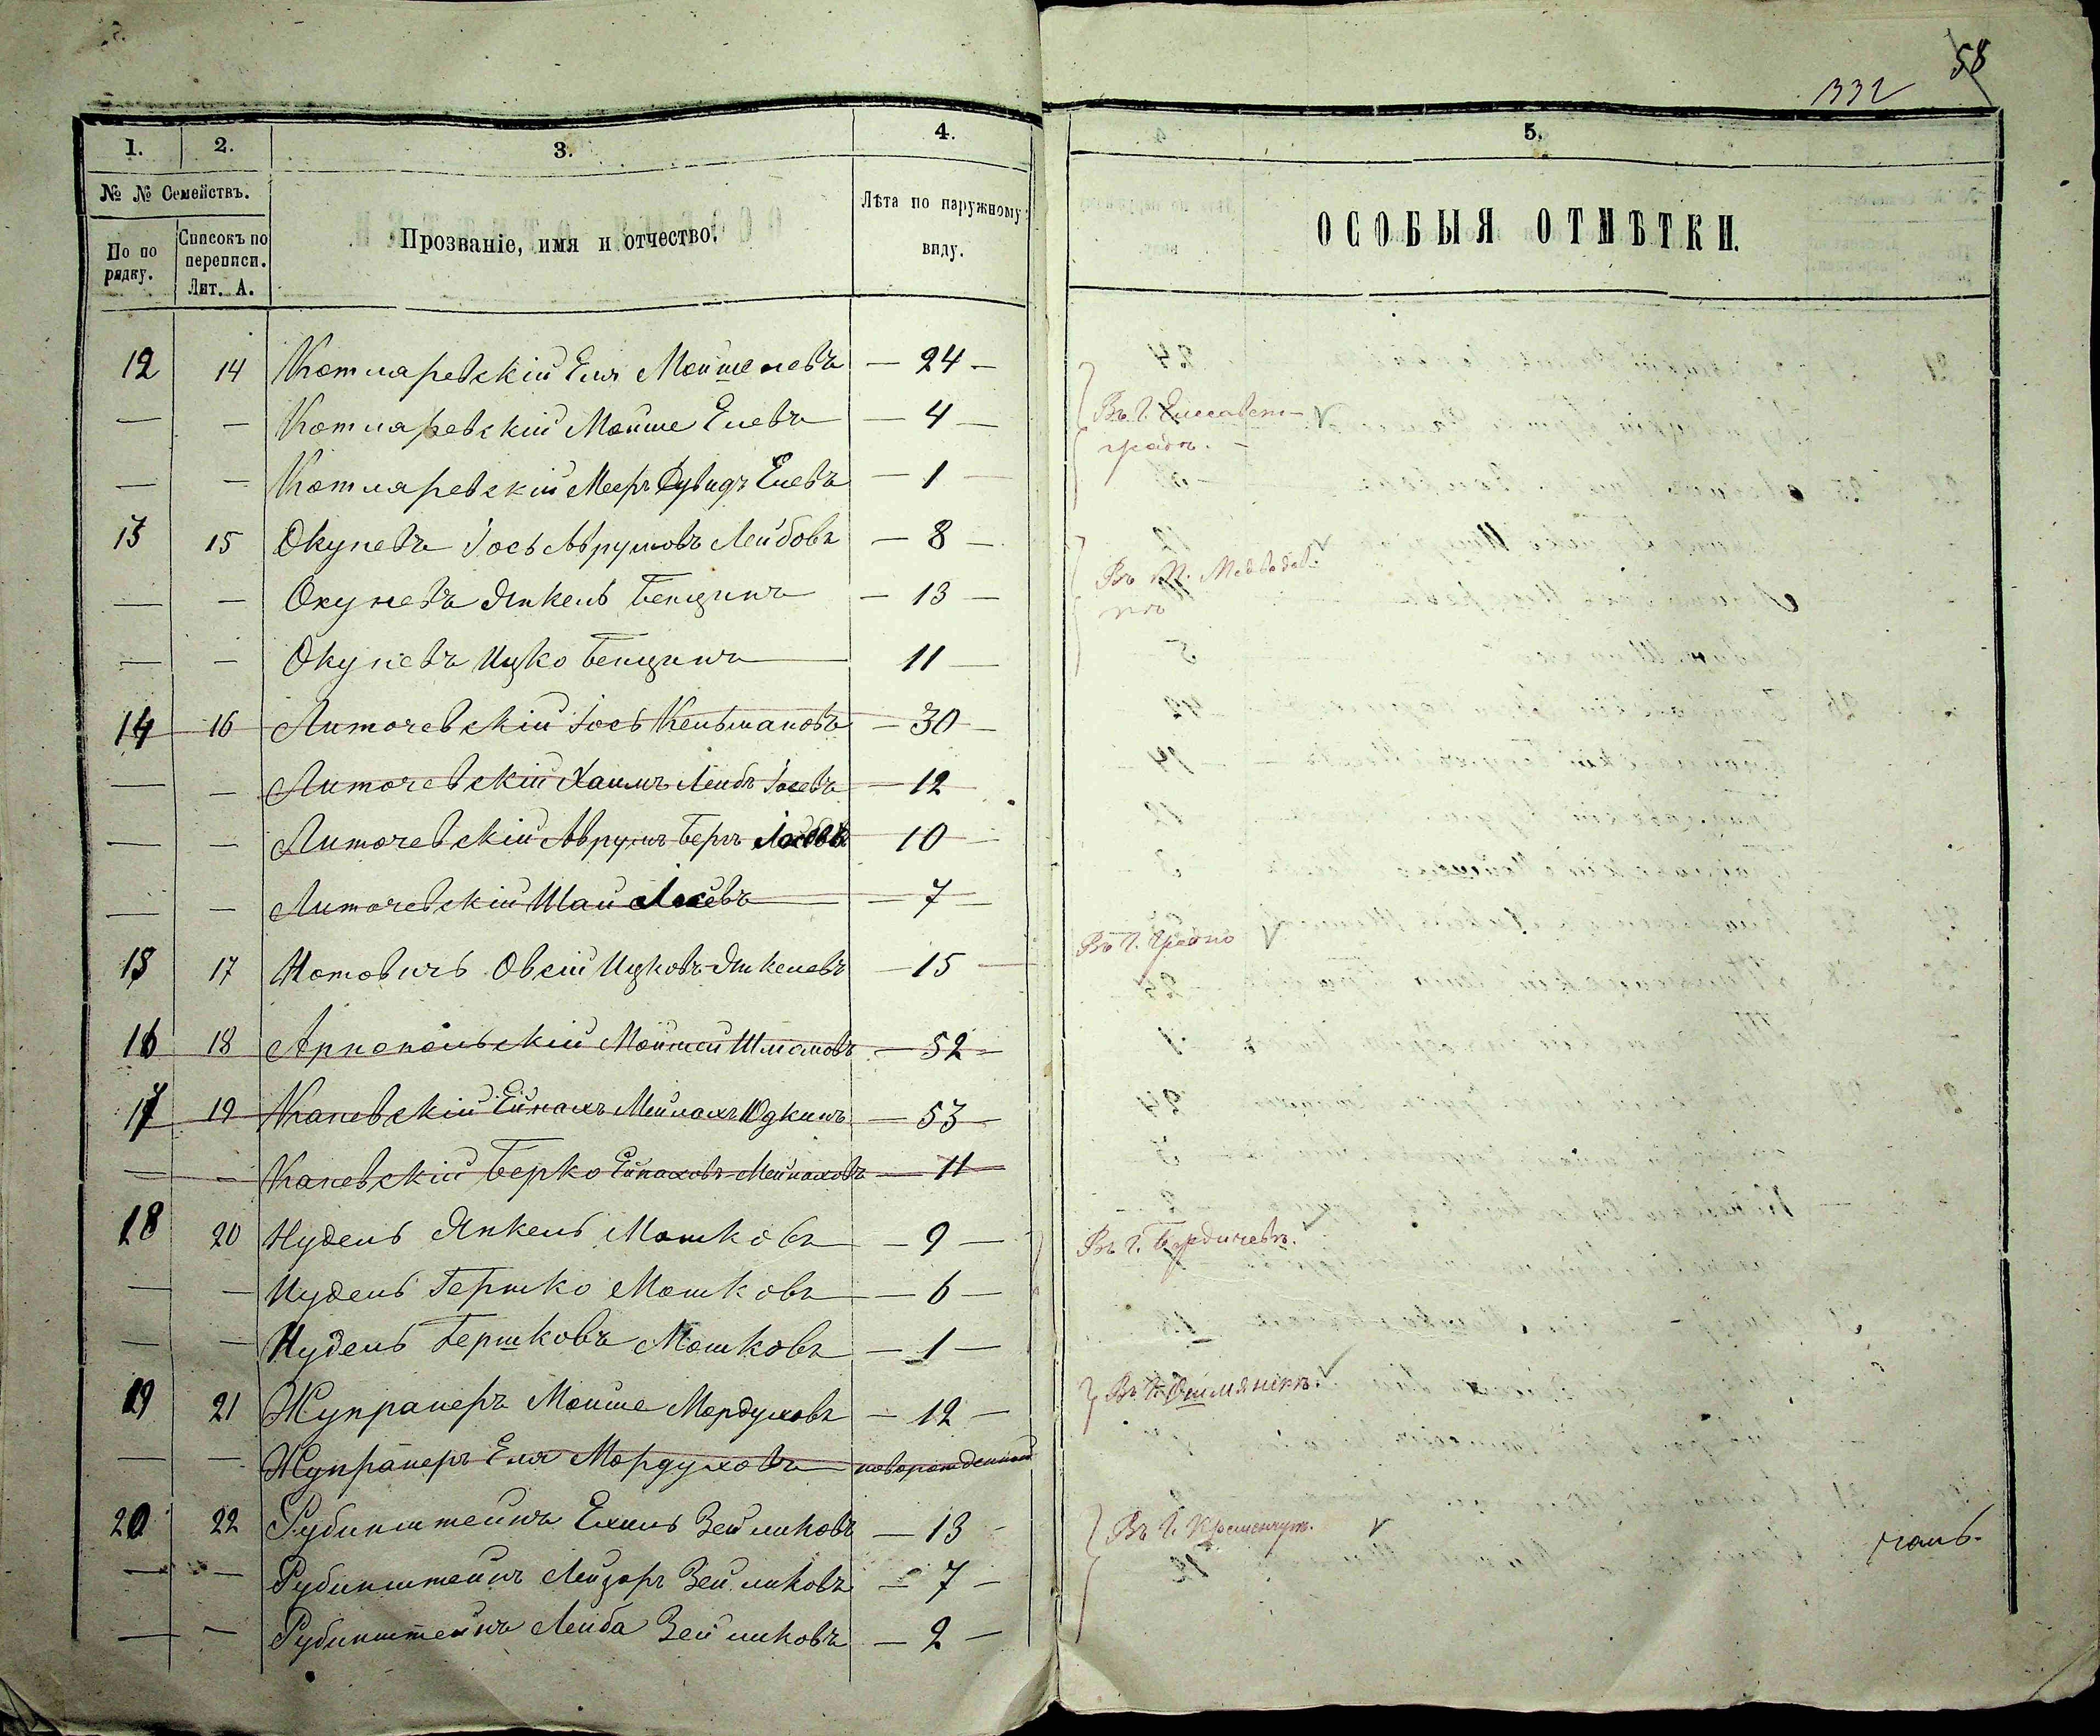 58
332
1.
2.
3.
4.
5.
№ № Семействъ.
По по рядку.
Списокъ по переписи. Лит. А.
Прозваніе, имя и отчество.
Лѣта по наружному виду.
ОСОБЫЯ ОТМѢТКИ.
12 14 Котляревскій Еля Мойшелевъ — 24 —
— — Котляревскій Мойше Елевъ — 4 —
Въ Г. Елисавет-
градѣ. —
— — Котляревскій Мееръ Дувидъ Елевъ — 1 —
13 15 Окуневъ Іось Аврумовъ Лейбовъ — 8 —
Въ М. Медведов.
— — Окуневъ Янкель Бенцинъ — 13 —
— — Окуневъ Ицко Бенцинъ 11 —
14 16 Литочевскій Іось Кельмановъ — 30 —
— — Литочевскій Хаимъ Лейбъ Іосевъ — 12
— — Литочевскій Аврумъ Беръ Іосевъ 10 —
— — Литочевскій Шая Іосевъ — 7 —
15 17 Нотовичъ Овсій Ицковъ-Янкелевъ — 15 —
Въ Г. Гродно
16 18 Арнопольскій Мойшей Шлемовъ — 52 —
17 19 Каневскій Ейнахъ Мейлахъ Юдкинъ — 53 —
— — Каневскій Берко Ейнаховъ-Мейлаховъ — 11 —
18 20 Нудель Янкель Мошковъ — 9 —
Въ Г. Бердичевѣ.
— — Нудель Гершко Мошковъ — 6 —
— — Нудель Гершковъ Мошковъ — 1 —
19 21 Жупранеръ Мойше Мордуховъ — 12 —
Въ Г. Ошмянкѣ.
— — Жупранеръ Еля Мордуховъ новорожденный
20 22 Рубинштейнъ Ехиль Зейликовъ — 13 —
Въ Г. Кременчугѣ.
— — Рубинштейнъ Лейзоръ Зейликовъ — 7 —
— — Рубинштейнъ Лейба Зейликовъ — 2 —